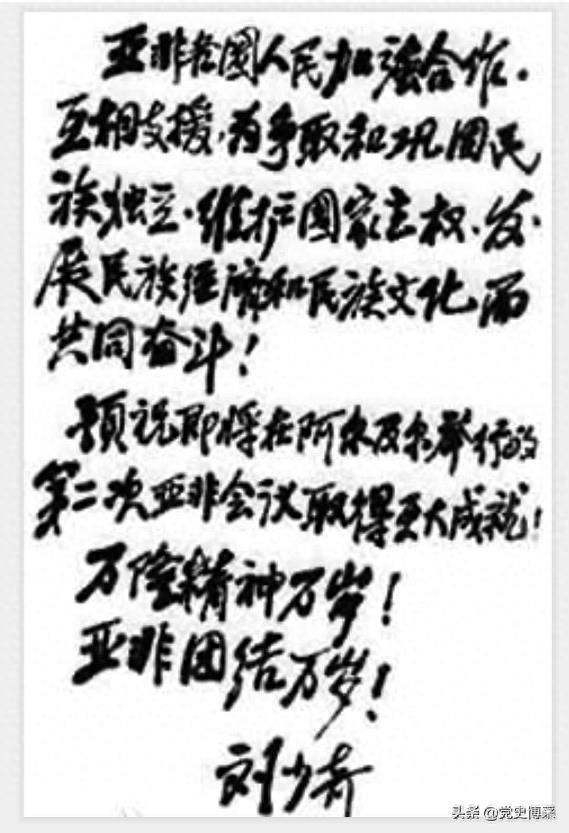 亚非各國人民加強合作、
互相支援、为争取和巩固民
族独立、維护國家主权、发
展民族經濟和民族文化而
共同奋斗！
預祝即将在阿尔及尔举行的
第二次亚非会议取得更大成就！
万隆精神万岁！
亚非团结万岁！
刘少奇
头条 @党史博采